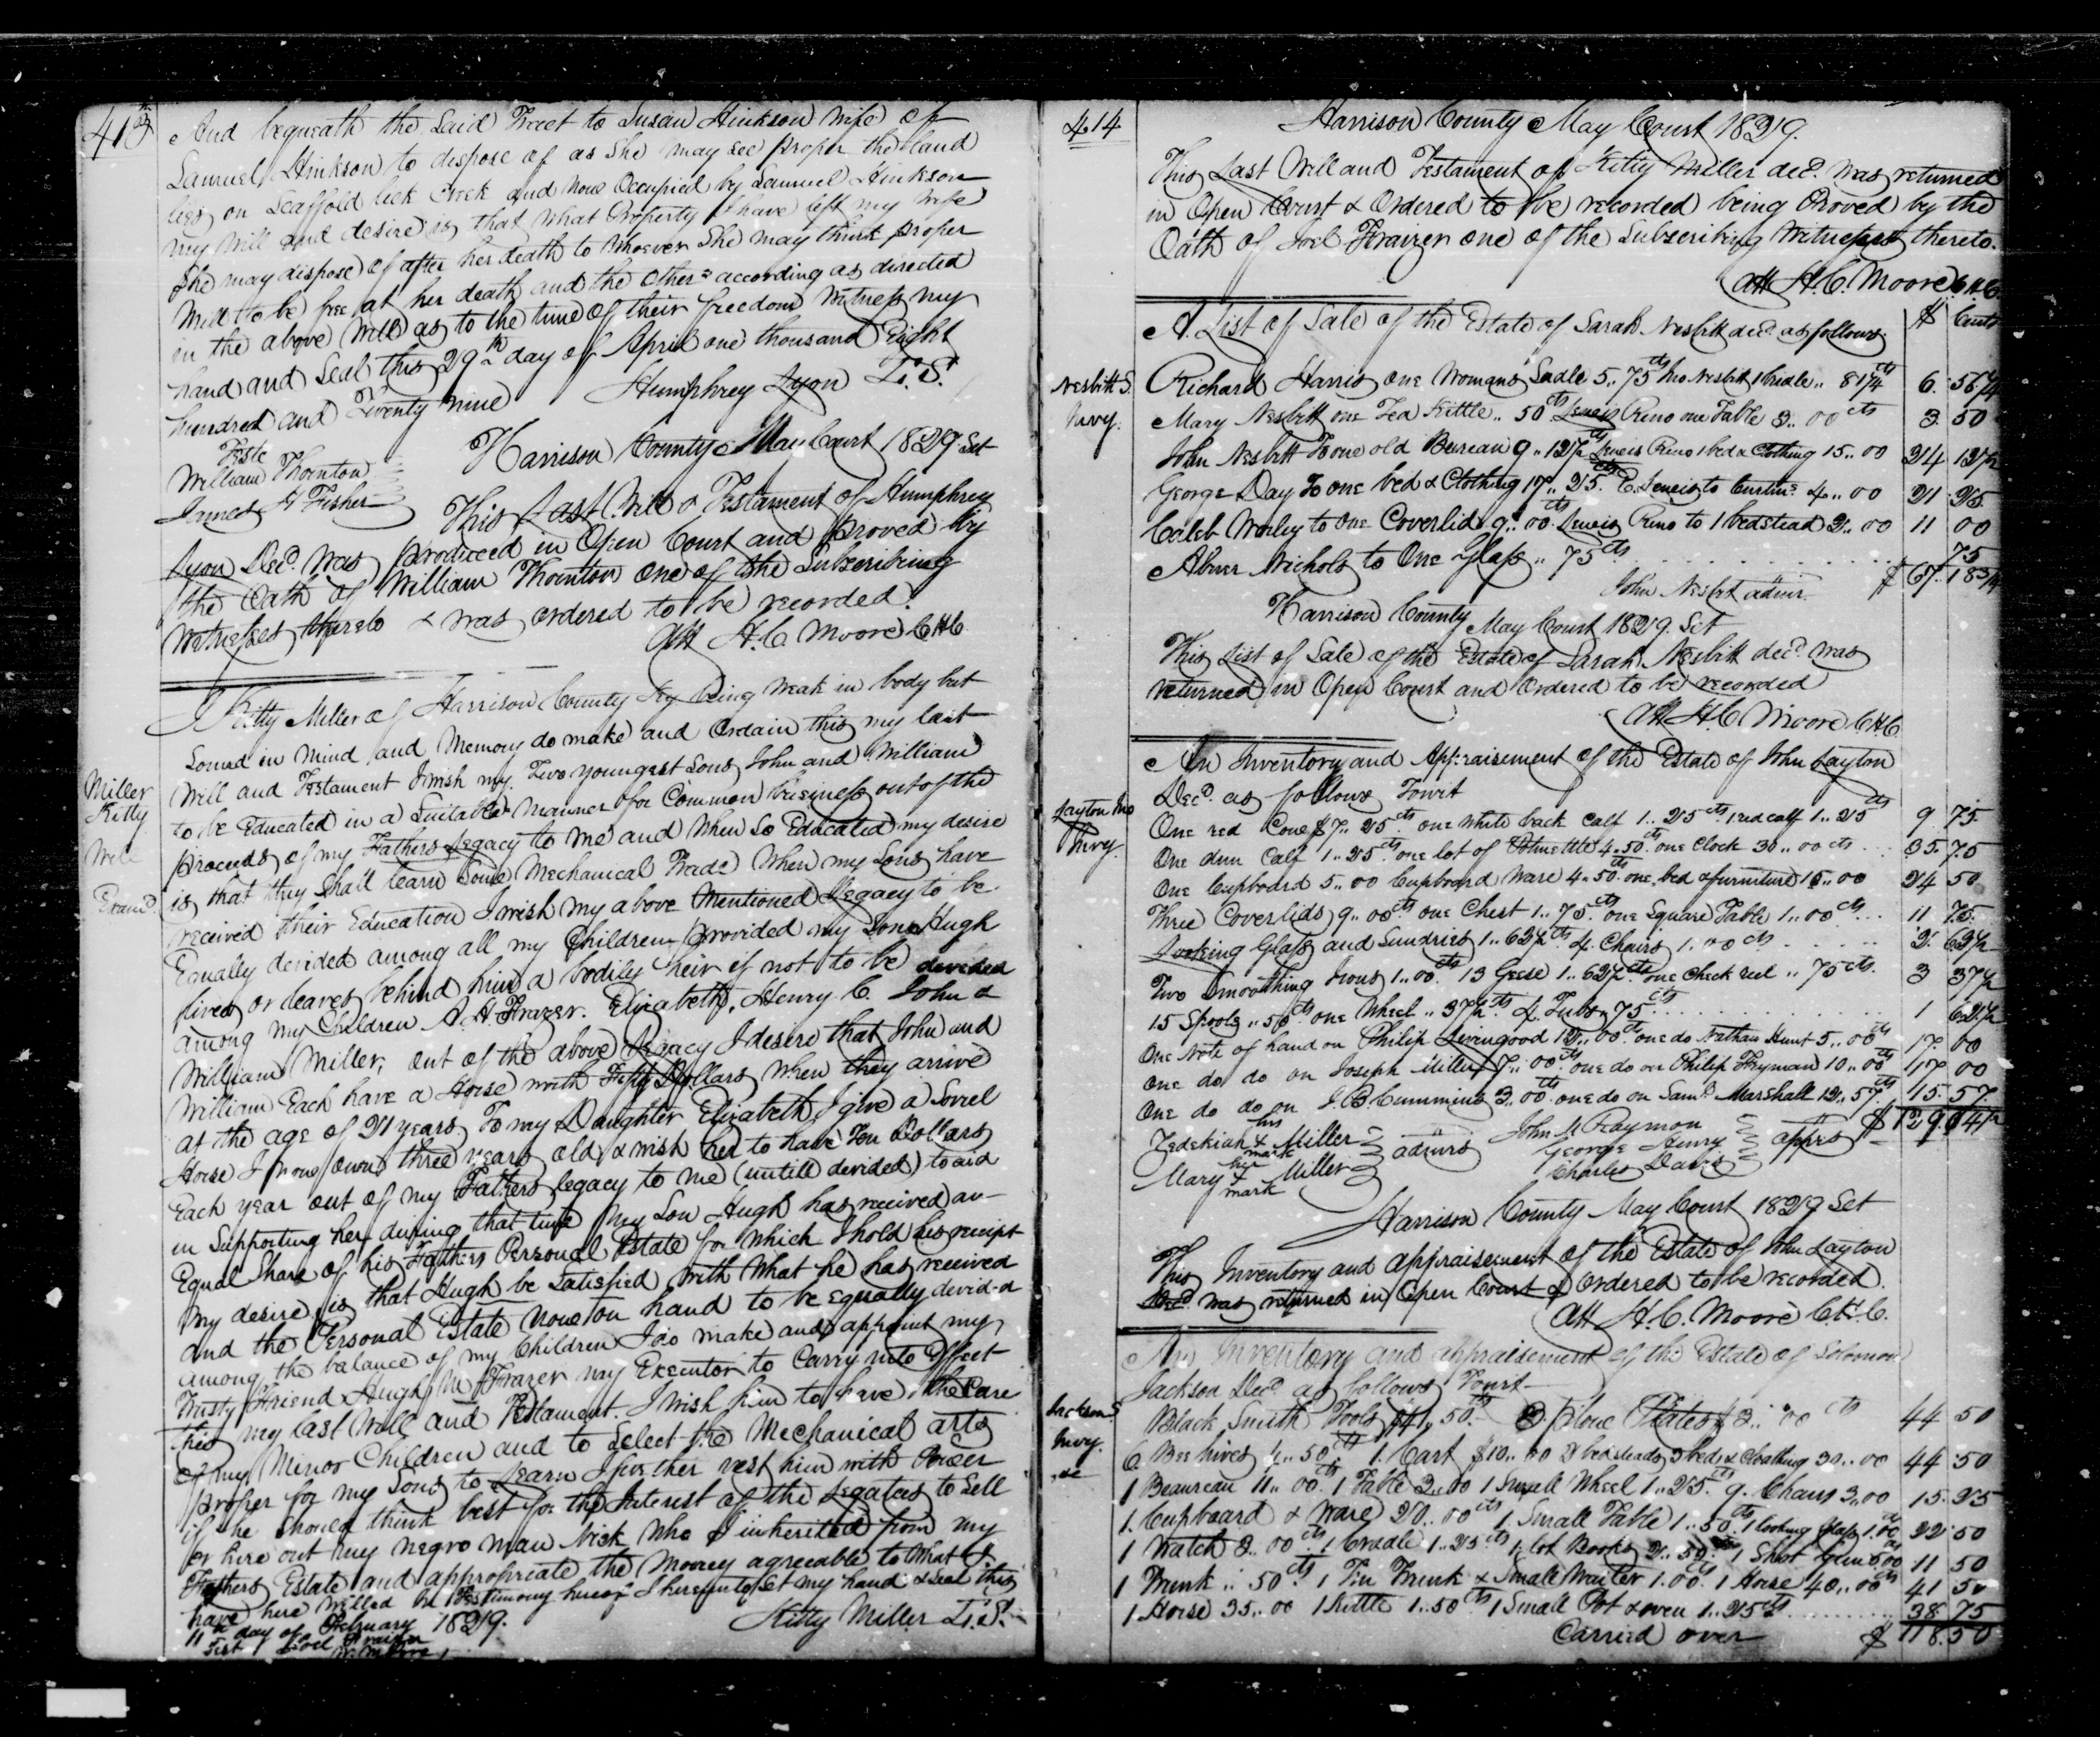 413
And bequeath the said Tract to Susan Hinkson wife of
Samuel Hinkson to dispose of as She may see proper the land
lies on Scaffold lick Creek and now Occupied by Samuel Hinkson
my will and desire is that what Property I have left my wife
She may dispose of after her death to whoever She may think proper
Will to be free at her death and the others according as directed
in the above Will as to the time of their freedom Witness my
hand and Seal this 29th day of April one thousand Eight
hundred and Twenty nine Humphrey Lyon L.S.
Teste
William Thornton
James H Fisher
Harrison County May Court 1829 Sct
This Last Will & Testament of Humphrey
Lyon Decd. was produced in Open Court and proved by
the Oath of William Thornton one of the Subscribing
Witnesses thereto & was ordered to be recorded.
Att H. C. Moore C H C
Miller
Kitty
Will
Examd.
I Kitty Miller of Harrison County Ky being weak in body but
Sound in Mind and Memory do make and Ordain this my last
Will and Testament I wish my Two youngest Sons John and William
to be Educated in a Suitable manner for Common business out of the
proceeds of my Fathers Legacy to me and when So Educated my desire
is that they Shall learn Some Mechanical Trade When my Sons have
received their Education I wish my above Mentioned Legacy to be
Equally devided among all my Children provided my Son Hugh
lives or leaves behind him a bodily heir if not to be devided
among my Children A. H. Frazer. Elizabeth, Henry C. John &
William Miller, out of the above Legacy I desire that John and
William Each have a Horse with Fifty Dollars when they arrive
at the age of 21 years To my Daughter Elizabeth I give a Sorrel
Horse I now own three years old & wish her to have Ten Dollars
Each year out of my Fathers legacy to me (untill devided) to aid
in Supporting her during that time My Son Hugh has received an
Equal Share of his Fathers Personal Estate for which I hold his receipt
My desire is that Hugh be Satisfied with What he has received
and the Personal Estate now on hand to be equally devid-d
among the balance of my Children I do make and appoint my
Trusty Friend Hugh M Frazer my Executor to Carry into Effect
this my last Will and Testament. I wish him to have the Care
of my Minor Children and to Select the Mechanical arts
proper for my Sons to Learn I further vest him with Power
if he should think best for the Interest of the Legatees to Sell
or hire out my negro man Nick who I inherited from my
Fathers Estate and appropriate the Money agreeable to What I
have here Willed In Testimony hereof I hereunto Set my hand & Seal this
11th day of February 1829. Kitty Miller L.S.
Test Joel Fraizer
414
Harrison County May Court 1829.
This Last Will and Testament of Kitty Miller decd. was returned
in Open Court & Ordered to be recorded being Proved by the
Oath of Joel Fraizer one of the Subscribing Witnesses thereto.
Att H. C. Moore C H C
Nesbitt S.
Invy.
A List of Sale of the Estate of Sarah Nesbitt decd. as follows $ Cents
Richard Harris one Womans Sadle 5.. 75 cts Nesbitt 1 bridle .. 81 1/4 cts 6. 56 1/4
Mary Nesbitt one Tea Kettle .. 50 cts Lewis Reno one Table 3.. 00 cts 3. 50
John Nesbitt To one old Bureau 9.. 12 1/2 cts Lewis Reno 1 bed & Clothing 15.. 00 24 12 1/2
George Day To one bed & Clothing 17.. 25. E. Lewis to Curtins 4.. 00 21 25
Caleb Worley to One Coverlid 9.. 00 cts Lewis Reno to 1 bedstead 2.. 00 11 00
Abner Nichols to One Glass .. 75 cts 75
John Nesbit admr. $ 67. 18 3/4
Harrison County May Court 1829. Sct
This List of Sale of the Estate of Sarah Nesbitt decd. was
returned in Open Court and Ordered to be recorded
Att H. C. Moore C H C
Layton Jno
Invy.
An Inventory and Appraisement of the Estate of John Layton
Decd. as follows Towit
One red Cow $7.. 25 cts. one White back Calf 1.. 25 cts 1 red calf 1.. 25 cts 9 75
One dun Calf 1.. 25 cts. one lot of Potmettle 4.. 50 cts. one Clock 30.. 00 cts 35. 75
One Cupboard 5.. 00 Cupboard Ware 4.. 50. one bed & furniture 15.. 00 24 50
Three Coverlids 9.. 00 cts one Chest 1.. 75 cts one Square Table 1.. 00 cts 11 75
Looking Glass and Sundries 1.. 62 1/2 cts 4 Chairs 1.. 00 cts 2. 62 1/2
Two Smoothing Irons 1.. 00 cts 13 Geese 1.. 62 1/2 cts one Check reel .. 75 cts. 3 37 1/2
15 Spools .. 50 cts one Wheel .. 37 1/2 cts 4 Tubs .. 75 cts 1 62 1/2
One Note of hand on Philip Livengood 12.. 00 cts one do Nathan Hunt 5.. 00 cts 17 00
One do do on Joseph Miller 7.. 00 cts one do on Philip Fryman 10.. 00 cts 17 00
One do do on J. B. Cummins 3.. 00 one do on Saml. Marshall 12.. 57 cts 15. 57
$ 129. 94 1/2
Zedekiah his X mark Miller
Mary her X mark Miller
admrs
John M Raymon
George Henry
Charles Davis
apprs
Harrison County May Court 1829 Sct
This Inventory and appraisement of the Estate of John Layton
Decd was returned in Open Court & Ordered to be recorded.
Att H. C. Moore C. H. C.
Jackson S.
Invy.
An Inventory and appraisement of the Estate of Solomon
Jackson Decd as follows Towit
Black Smith Tools $41.. 50 cts. 2. plow Plates $3.. 00 cts 44 50
6 Bee hives 4.. 50 cts 1. Cart $10.. 00 2 bedsteads 3 beds & Cloathing 30.. 00 44 50
1 Beaureau 11.. 00 cts. 1 Table 2.. 00 1 Small Wheel 1.. 25 cts. 9. Chairs 3.. 00 15. 25
1. Cupboard & Ware 20.. 00 cts 1. Small Table 1.. 50 cts. 1 looking glass 1.. 00 22 50
1 Watch 2.. 00 cts. 1 Cradle 1.. 25 cts 1 lot Books 2.. 50 1 Shot Gun 11 50
1 Trunk .. 50 cts. 1 Tin Trunk & Small Waiter 1.. 00. 1 Horse 40.. 00 cts 41 50
1. Horse 35.. 00 1 Kettle 1.. 50 cts 1 Small Pot & oven 1.. 25 cts 38. 75
Carried over $ 118. 50